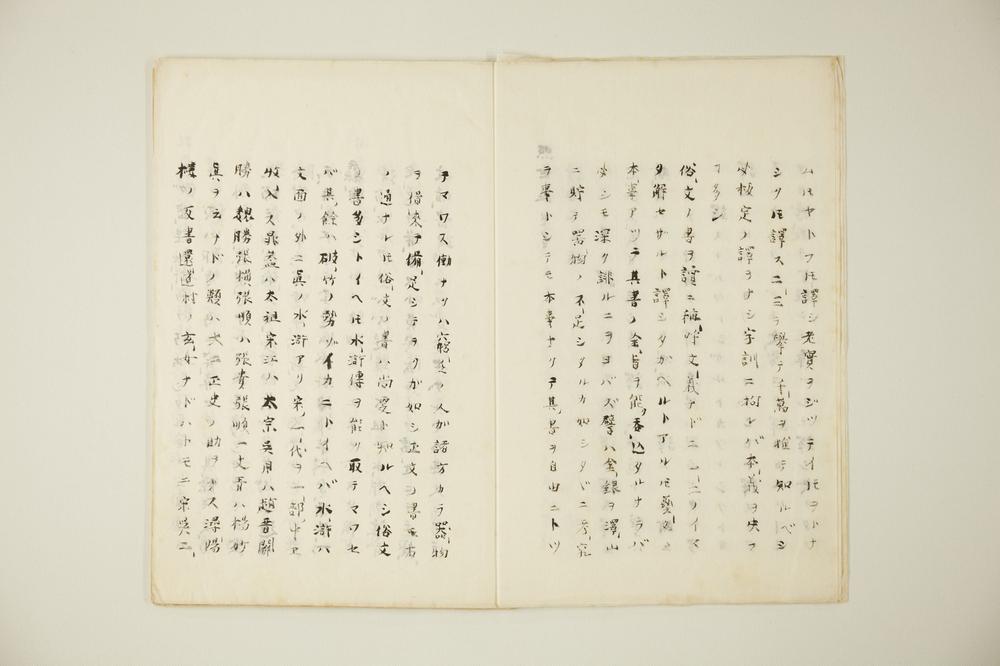 ムルヤトフモ譯シ老實ヲジツテイ𪜈ヲトナ
シク𪜈譯ス二三ヲ擧テ千萬ヲ推テ知ルベシ
必板定ノ譯ヲナシ字訓ニ拘レバ本義ヲ失フ
丁多シ
俗文ノ書ヲ讀ニ種々文義ナドニ一二ノイマ
タ解セザルト譯シタガヘルトアルモ
本書アツテ其書ノ全旨ヲ能呑込タルナラバ
必シモ深ク誹ルニヲヨバズ譬ハ金銀ヲ澤山
ニ貯テ器物ノ不足シタルカ如シタバニ
ラ擧トシテモ本書ヤリテ其書ヲ自由ニトツ
テマワス働ナリハ窮迫ノ人ガ諸方カラ器物
ヲ借來テ備足シテヲクガ如シ正文ヲ書モ右
ノ通ナル𪜈俗文ノ書ハ尚更ト知ルヘシ俗文
ノ書多シトイヘ𪜈水滸傳ヲ能ク取テマワセ
バ其餘ハ破竹ノ勢ゾイカニトイヘバ水滸ハ
文面ノ外ニ眞ノ水滸アリ宋一代ヲ一部中エ
收入ス晁蓋ハ太祖宋江ハ太宗吳用ハ趙普關
勝ハ魏勝張橫張順ハ張貴張順一丈靑ハ楊妙
眞ヲ云ナドノ類ハ大ニ正史ノ助ヲナス潯陽
樓ノ反書還道村ノ玄女ナドハトモニ宋吳二